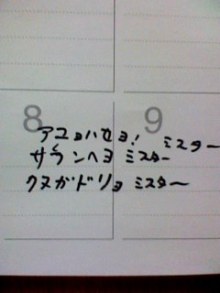 8 9
アニョハセヨ! ミスター
サランヘヨ ミスター
クヌガドリョ ミスター